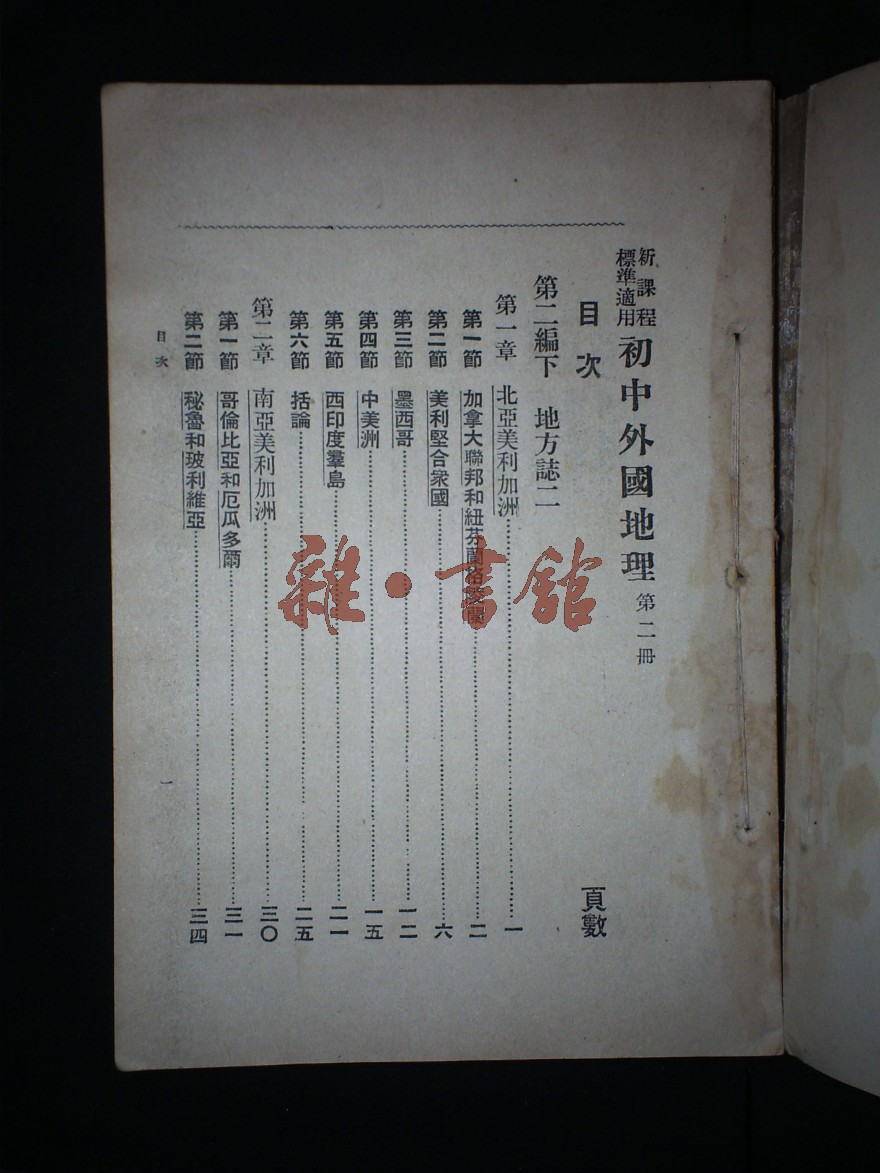 新課程標準適用 初中外國地理 第二冊
目次 頁數
第二編下 地方誌二
第一章 北亞美利加洲……一
第一節 加拿大聯邦和紐芬蘭……二
第二節 美利堅合衆國……六
第三節 墨西哥……一二
第四節 中美洲……一五
第五節 西印度羣島……二一
第六節 括論……二五
第二章 南亞美利加洲……三〇
第一節 哥倫比亞和厄瓜多爾……三一
第二節 秘魯和玻利維亞……三四
目次 一
雜·書館